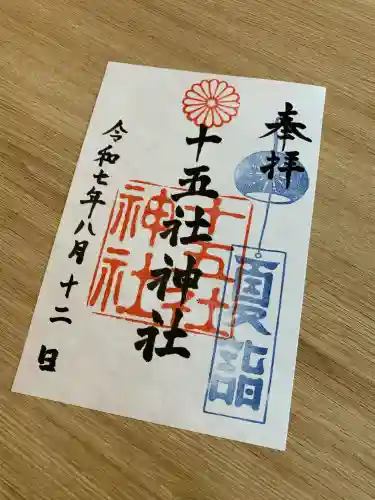 奉拝
夏詣
十五社神社
十五社
神社
令和七年八月十二日